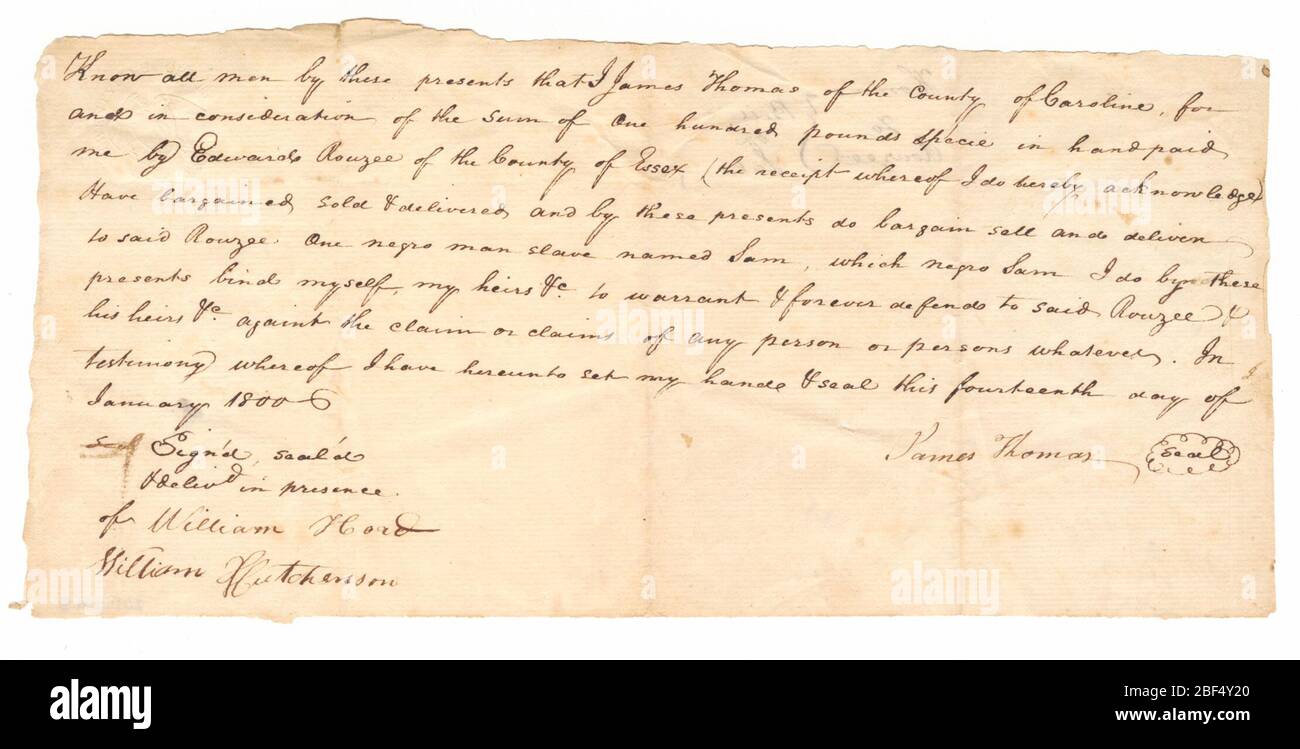 Know all men by these presents that I James Thomas of the County of Caroline, for
and in consideration of the Sum of One hundred pounds specie in hand paid
me by Edward Rouzee of the County of Essex (the receipt whereof I do hereby acknowledge)
Have bargained sold & delivered and by these presents do bargain sell and deliver
to said Rouzee One negro man slave named Sam, which negro Sam I do by these
presents bind myself, my heirs &c to warrant & forever defend to said Rouzee &
his heirs &c againt the claim or claims of any person or persons whatever. In
testimony whereof I have hereunto set my hand & seal this fourteenth day of
January 1800
Sign'd, seal'd
& deliv'd in presence
of William Hord
William Hutchenson
James Thomas seal
alamy
alamy
Image ID: 2BF4Y20
www.alamy.com